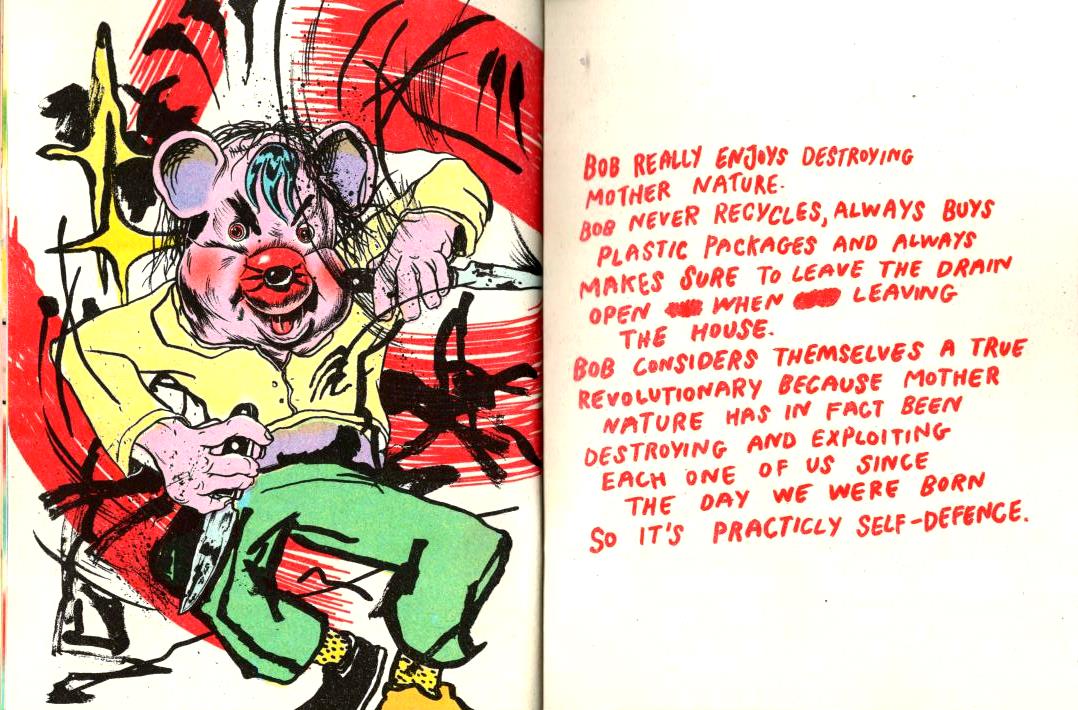 BOB REALLY ENJOYS DESTROYING
MOTHER NATURE.
BOB NEVER RECYCLES, ALWAYS BUYS
PLASTIC PACKAGES AND ALWAYS
MAKES SURE TO LEAVE THE DRAIN
OPEN WHEN LEAVING
THE HOUSE.
BOB CONSIDERS THEMSELVES A TRUE
REVOLUTIONARY BECAUSE MOTHER
NATURE HAS IN FACT BEEN
DESTROYING AND EXPLOITING
EACH ONE OF US SINCE
THE DAY WE WERE BORN
SO IT'S PRACTICLY SELF-DEFENCE.